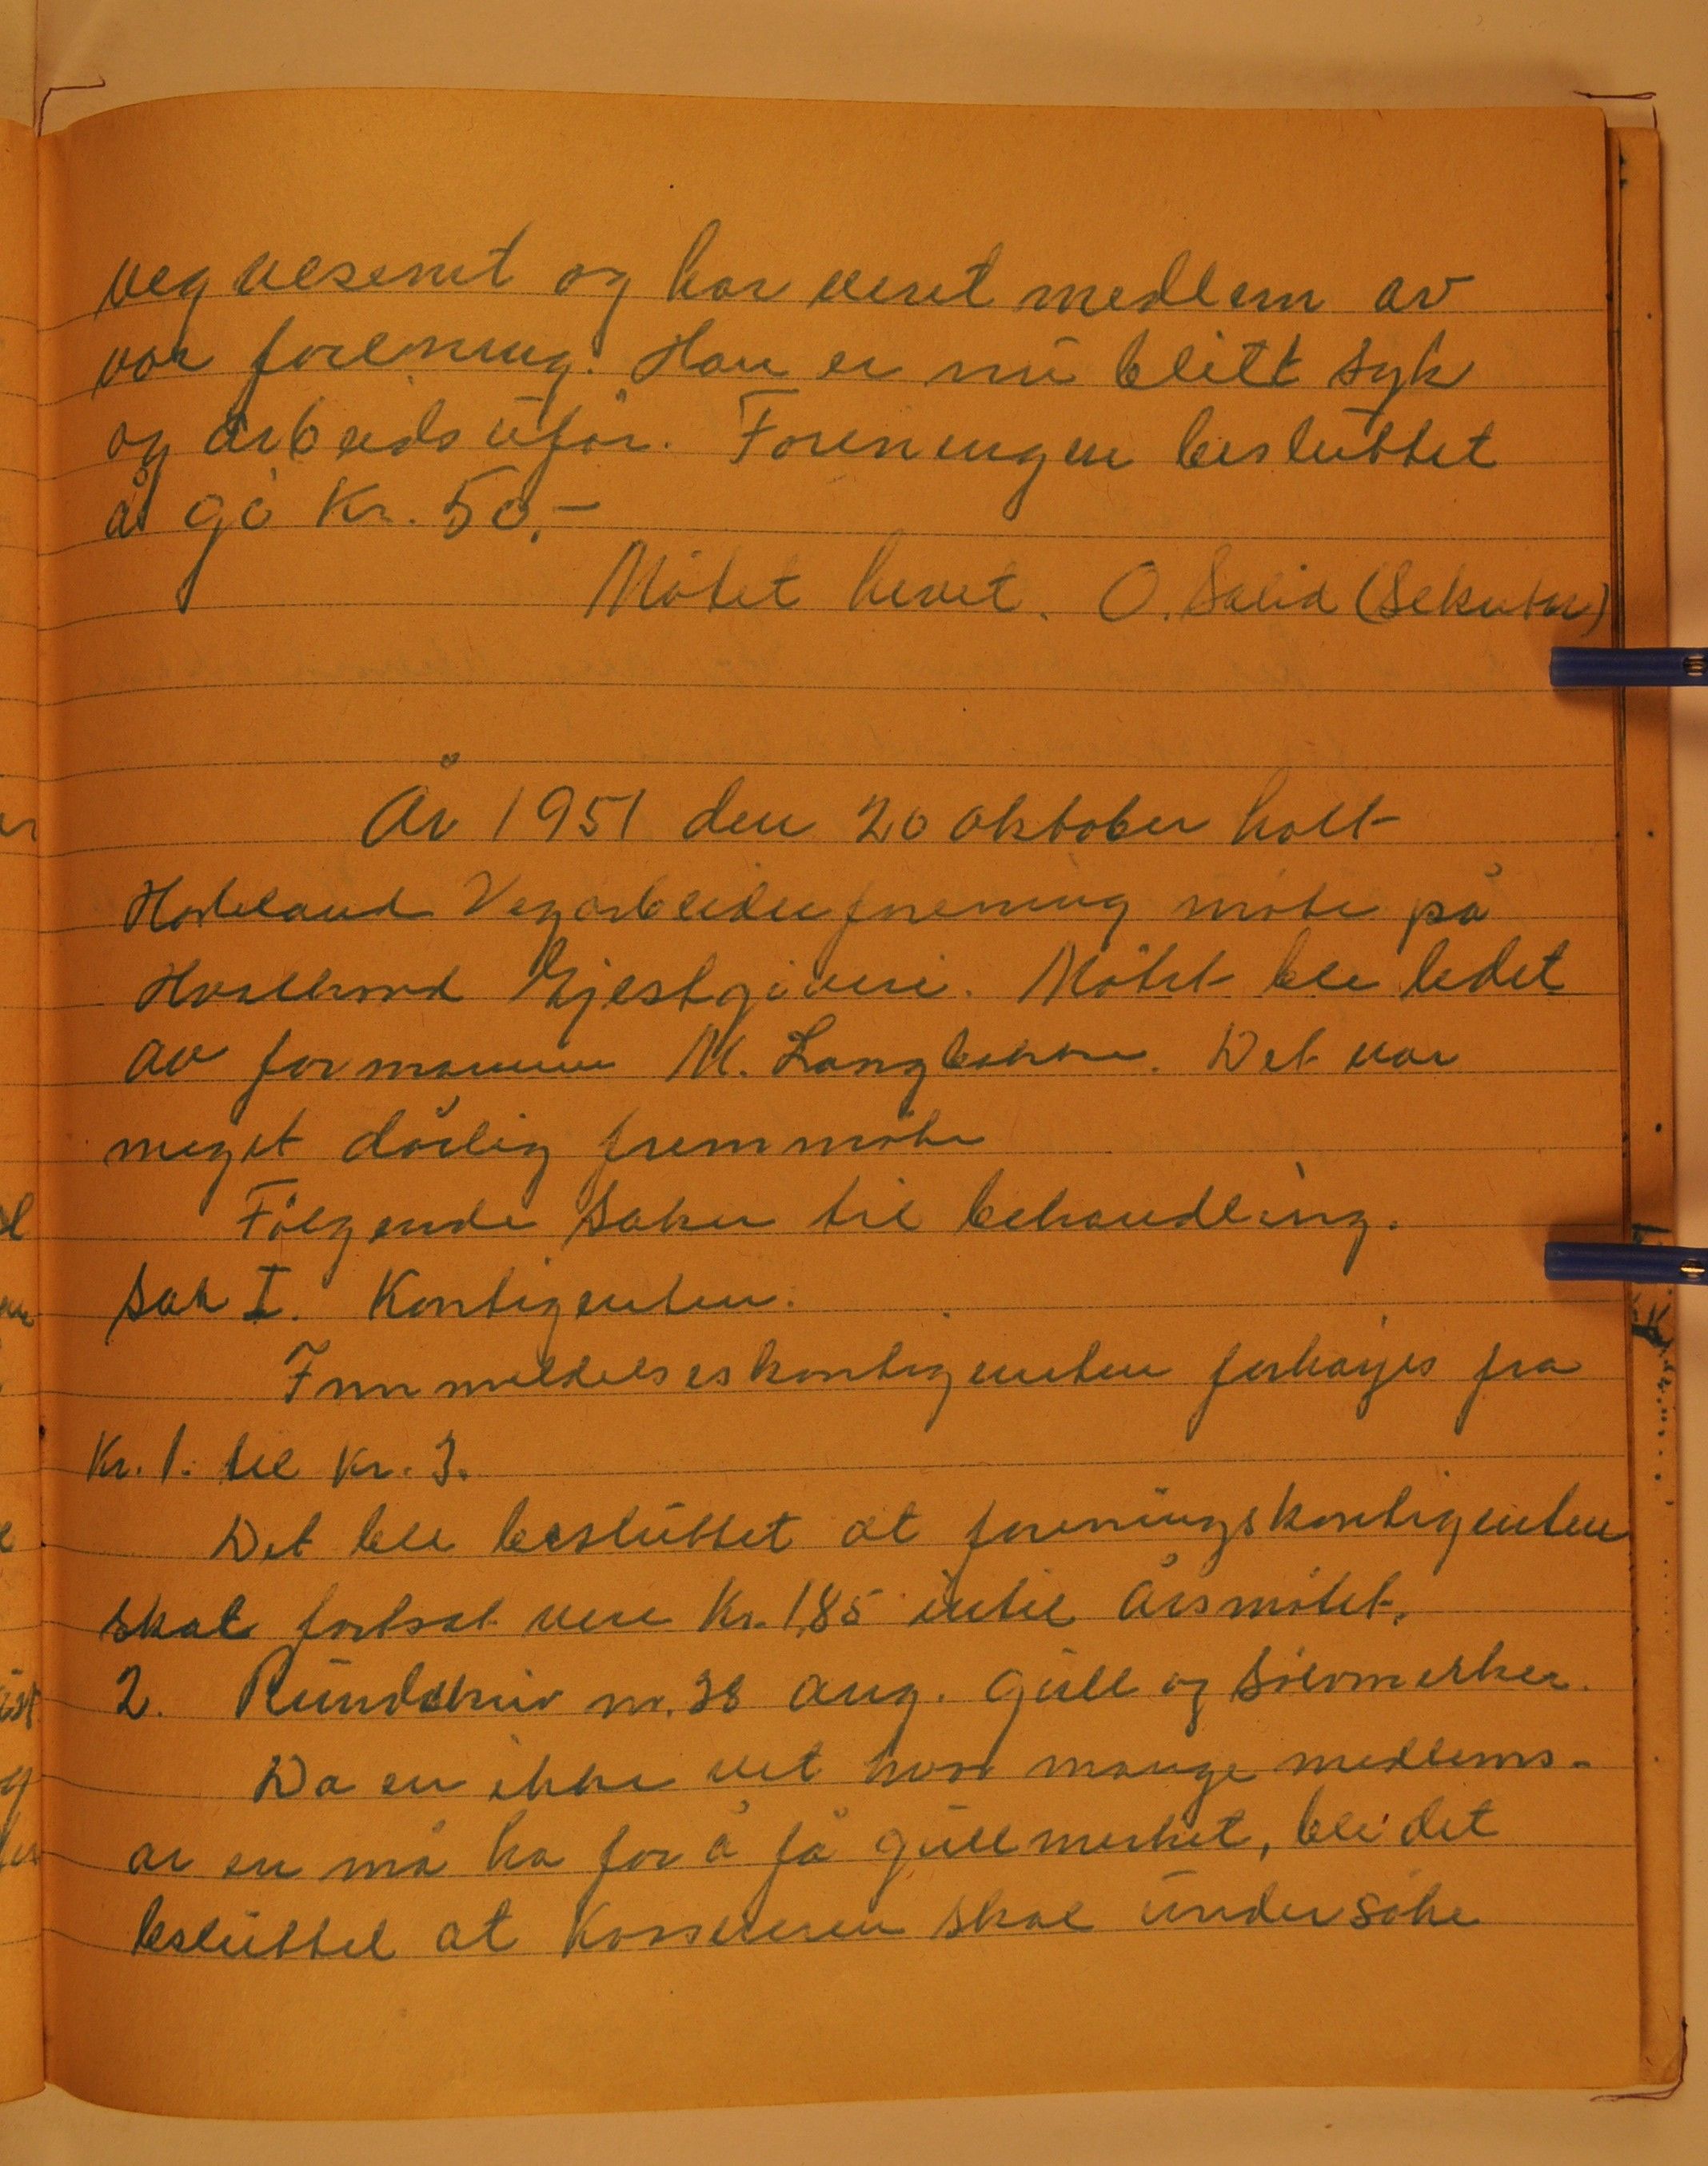 veg vesenet og har veret medlem av
vor forening. Han er nu blitt syk
og arbeids ufør. Foreningen besluttet
å gi Kr. 50.-
Møtet hevet. O. (Sekretær)
År 1951 den 20 oktober holt
Vegarbeiderforening møte på
Gjestgiveri. Møtet ble ledet
av formannen M. Langbakken. Det var
meget dårlig fremmøte
Følgende saker til behandling.
Sak I. Kontigenten.
Innmeldelseskontigenten forhøyes fra
Kr. 1. til Kr. 3.
Det ble besluttet at foreningskontigenten
skal fortsat vere Kr. 1,85 intil årsmøtet.
2. Rundskriv nr. 38 ang. gull og sølvmerker.
Da en ikke vet hvor mange medlems-
år en må ha for å få gullmerket, ble det
besluttet at Kassereren skal undersøke